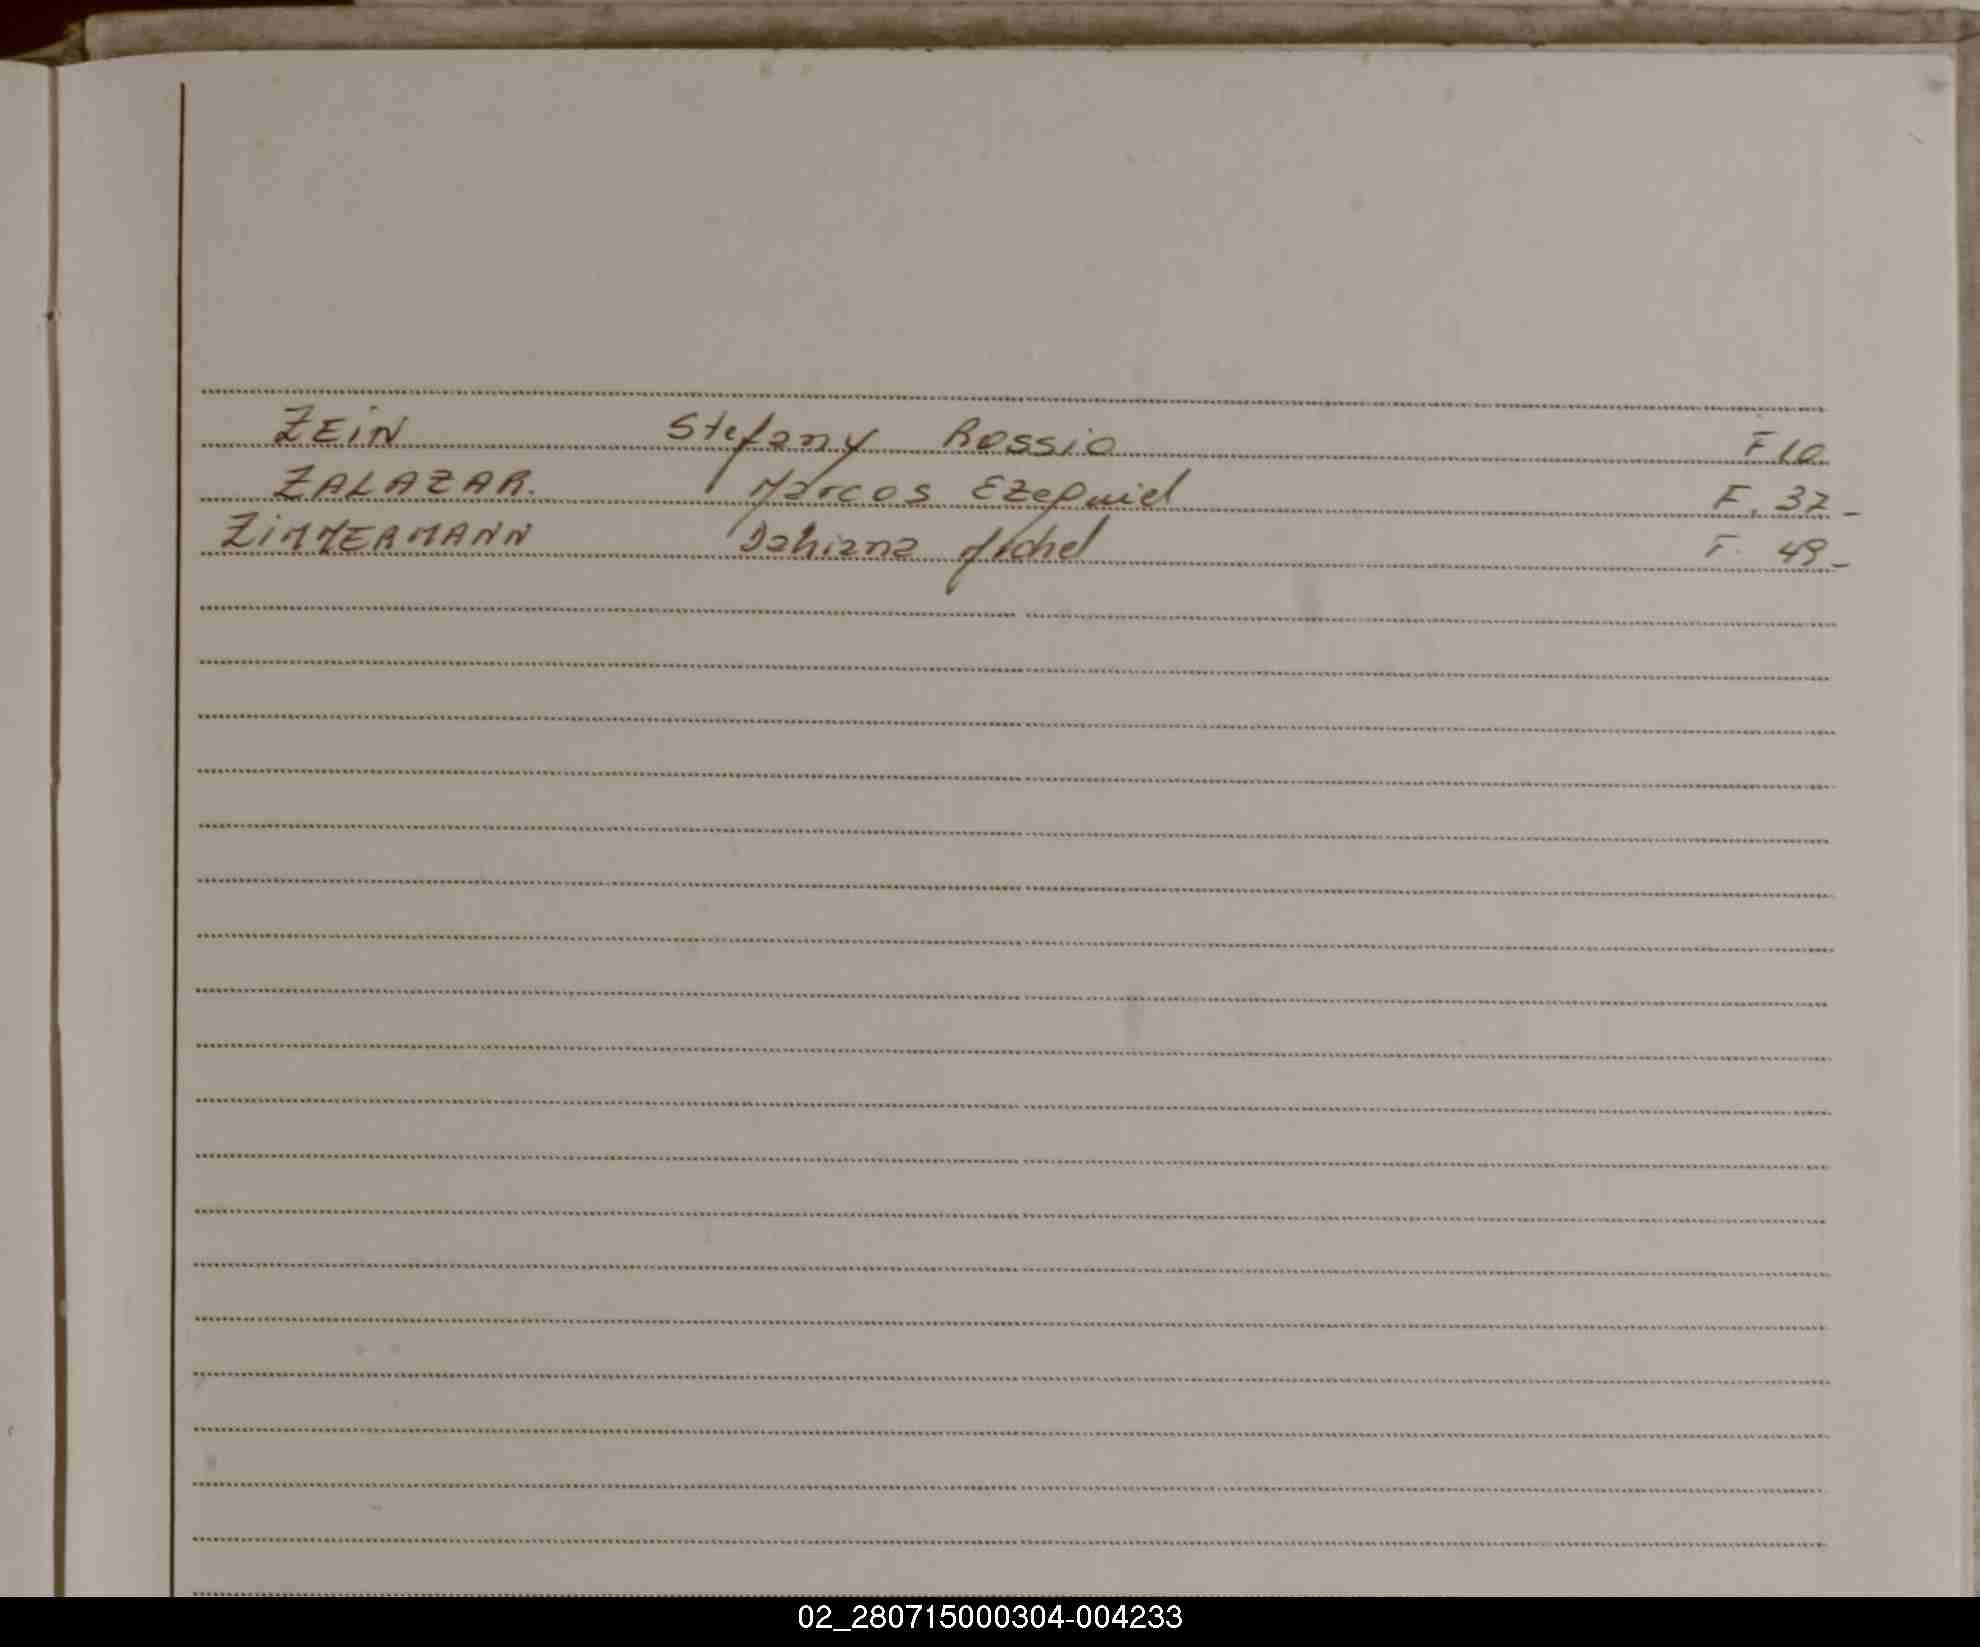 ZEIN Stefany Rossio F 10
ZALAZAR. Marcos Ezequiel F. 37-
ZIMMERMANN Dahiana Michel F. 49-
02_280715000304-004233